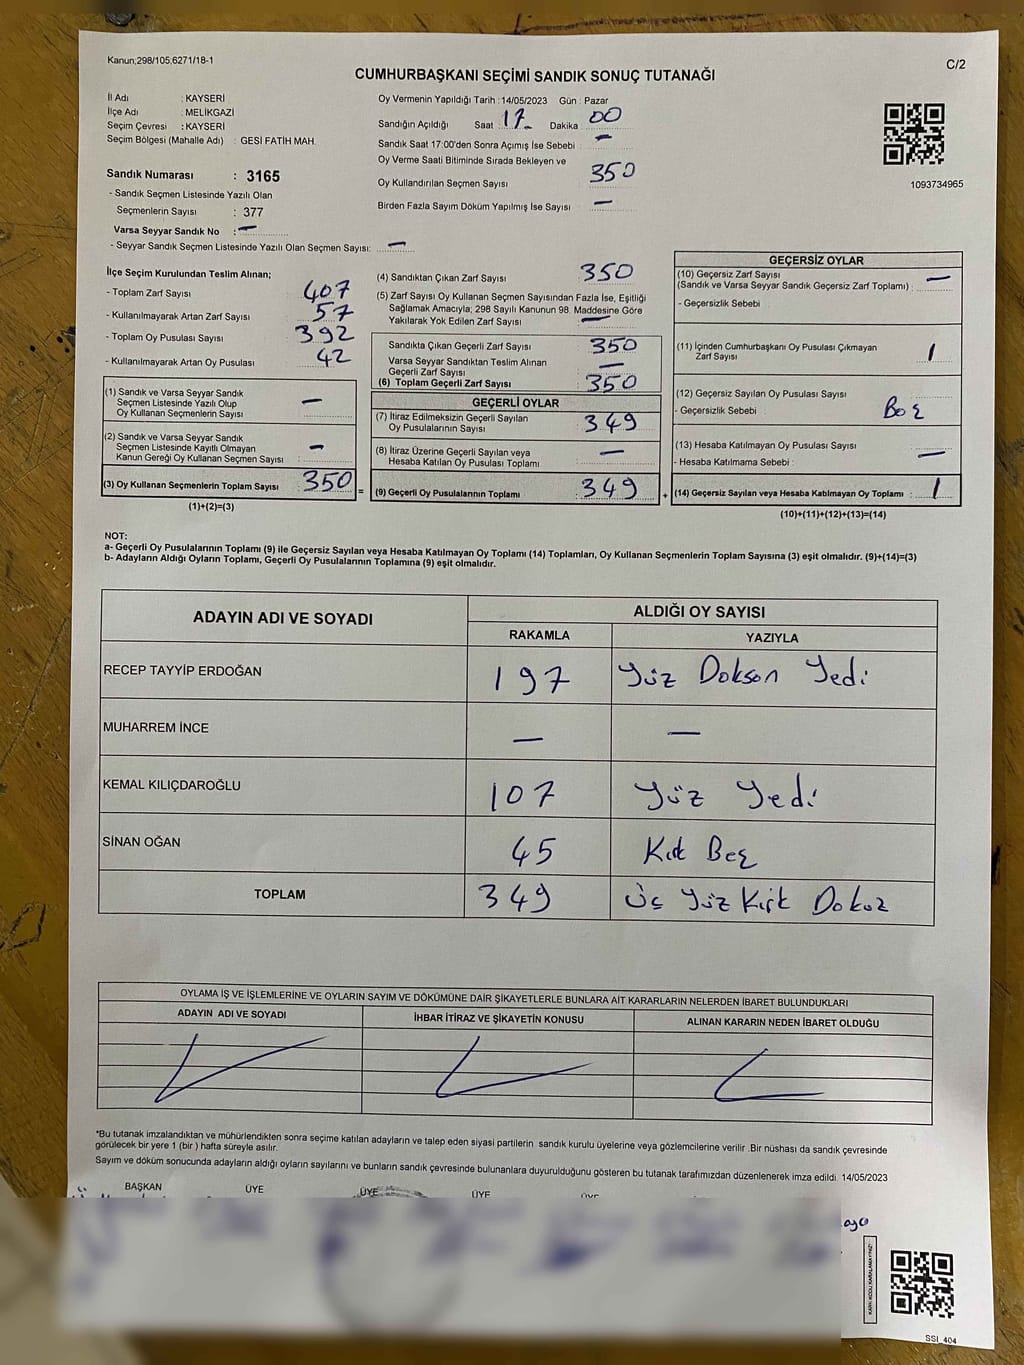 Kanun;298/105,6271/18-1
C/2
CUMHURBAŞKANI SEÇİMİ SANDIK SONUÇ TUTANAĞI
İl Adı : KAYSERİ
İlçe Adı : MELİKGAZİ
Seçim Çevresi : KAYSERİ
Seçim Bölgesi (Mahalle Adı) : GESİ FATİH MAH.
Sandık Numarası : 3165
- Sandık Seçmen Listesinde Yazılı Olan
Seçmenlerin Sayısı : 377
Varsa Seyyar Sandık No : —
- Seyyar Sandık Seçmen Listesinde Yazılı Olan Seçmen Sayısı: —
Oy Vermenin Yapıldığı Tarih :14/05/2023 Gün : Pazar
Sandığın Açıldığı Saat : 17 Dakika : 00
Sandık Saat 17:00'den Sonra Açımış İse Sebebi : —
Oy Verme Saati Bitiminde Sırada Bekleyen ve
Oy Kullandırılan Seçmen Sayısı : 350
Birden Fazla Sayım Döküm Yapılmış İse Sayısı : —
1093734965
İlçe Seçim Kurulundan Teslim Alınan;
- Toplam Zarf Sayısı : 407
- Kullanılmayarak Artan Zarf Sayısı : 57
- Toplam Oy Pusulası Sayısı : 392
- Kullanılmayarak Artan Oy Pusulası : 42
(1) Sandık ve Varsa Seyyar Sandık
Seçmen Listesinde Yazılı Olup
Oy Kullanan Seçmenlerin Sayısı : —
(2) Sandık ve Varsa Seyyar Sandık
Seçmen Listesinde Kayıtlı Olmayan
Kanun Gereği Oy Kullanan Seçmen Sayısı : —
(3) Oy Kullanan Seçmenlerin Toplam Sayısı : 350 =
(1)+(2)=(3)
(4) Sandıktan Çıkan Zarf Sayısı : 350
(5) Zarf Sayısı Oy Kullanan Seçmen Sayısından Fazla İse, Eşitliği
Sağlamak Amacıyla; 298 Sayılı Kanunun 98. Maddesine Göre
Yakılarak Yok Edilen Zarf Sayısı : —
Sandıkta Çıkan Geçerli Zarf Sayısı : 350
Varsa Seyyar Sandıktan Teslim Alınan
Geçerli Zarf Sayısı : —
(6) Toplam Geçerli Zarf Sayısı : 350
GEÇERLİ OYLAR
(7) İtiraz Edilmeksizin Geçerli Sayılan
Oy Pusulalarının Sayısı : 349
(8) İtiraz Üzerine Geçerli Sayılan veya
Hesaba Katılan Oy Pusulası Toplamı : —
(9) Geçerli Oy Pusulalarının Toplamı : 349 +
GEÇERSİZ OYLAR
(10) Geçersiz Zarf Sayısı
(Sandık ve Varsa Seyyar Sandık Geçersiz Zarf Toplamı) : —
- Geçersizlik Sebebi :
(11) İçinden Cumhurbaşkanı Oy Pusulası Çıkmayan
Zarf Sayısı : 1
(12) Geçersiz Sayılan Oy Pusulası Sayısı :
- Geçersizlik Sebebi : Boş
(13) Hesaba Katılmayan Oy Pusulası Sayısı :
- Hesaba Katılmama Sebebi : —
(14) Geçersiz Sayılan veya Hesaba Katılmayan Oy Toplamı : 1
(10)+(11)+(12)+(13)=(14)
NOT:
a- Geçerli Oy Pusulalarının Toplamı (9) ile Geçersiz Sayılan veya Hesaba Katılmayan Oy Toplamı (14) Toplamları, Oy Kullanan Seçmenlerin Toplam Sayısına (3) eşit olmalıdır. (9)+(14)=(3)
b- Adayların Aldığı Oyların Toplamı, Geçerli Oy Pusulalarının Toplamına (9) eşit olmalıdır.
ADAYIN ADI VE SOYADI ALDIĞI OY SAYISI
RAKAMLA YAZIYLA
RECEP TAYYİP ERDOĞAN 197 Yüz Dokson Yedi
MUHARREM İNCE — —
KEMAL KILIÇDAROĞLU 107 Yüz Yedi
SİNAN OĞAN 45 Kırk Beş
TOPLAM 349 Üç Yüz Kırk Dokuz
OYLAMA İŞ VE İŞLEMLERİNE VE OYLARIN SAYIM VE DÖKÜMÜNE DAİR ŞİKAYETLERLE BUNLARA AİT KARARLARIN NELERDEN İBARET BULUNDUKLARI
ADAYIN ADI VE SOYADI İHBAR İTİRAZ VE ŞİKAYETİN KONUSU ALINAN KARARIN NEDEN İBARET OLDUĞU
*Bu tutanak imzalandıktan ve mühürlendikten sonra seçime katılan adayların ve talep eden siyasi partilerin sandık kurulu üyelerine veya gözlemcilerine verilir .Bir nüshası da sandık çevresinde
görülecek bir yere 1 (bir ) hafta süreyle asılır.
Sayım ve döküm sonucunda adayların aldığı oyların sayılarını ve bunların sandık çevresinde bulunanlara duyurulduğunu gösteren bu tutanak tarafımızdan düzenlenerek imza edildi. 14/05/2023
BAŞKAN ÜYE ÜYE ÜYE ÜYE
KARE KODU KARALAMAYINIZ!
SSI_404